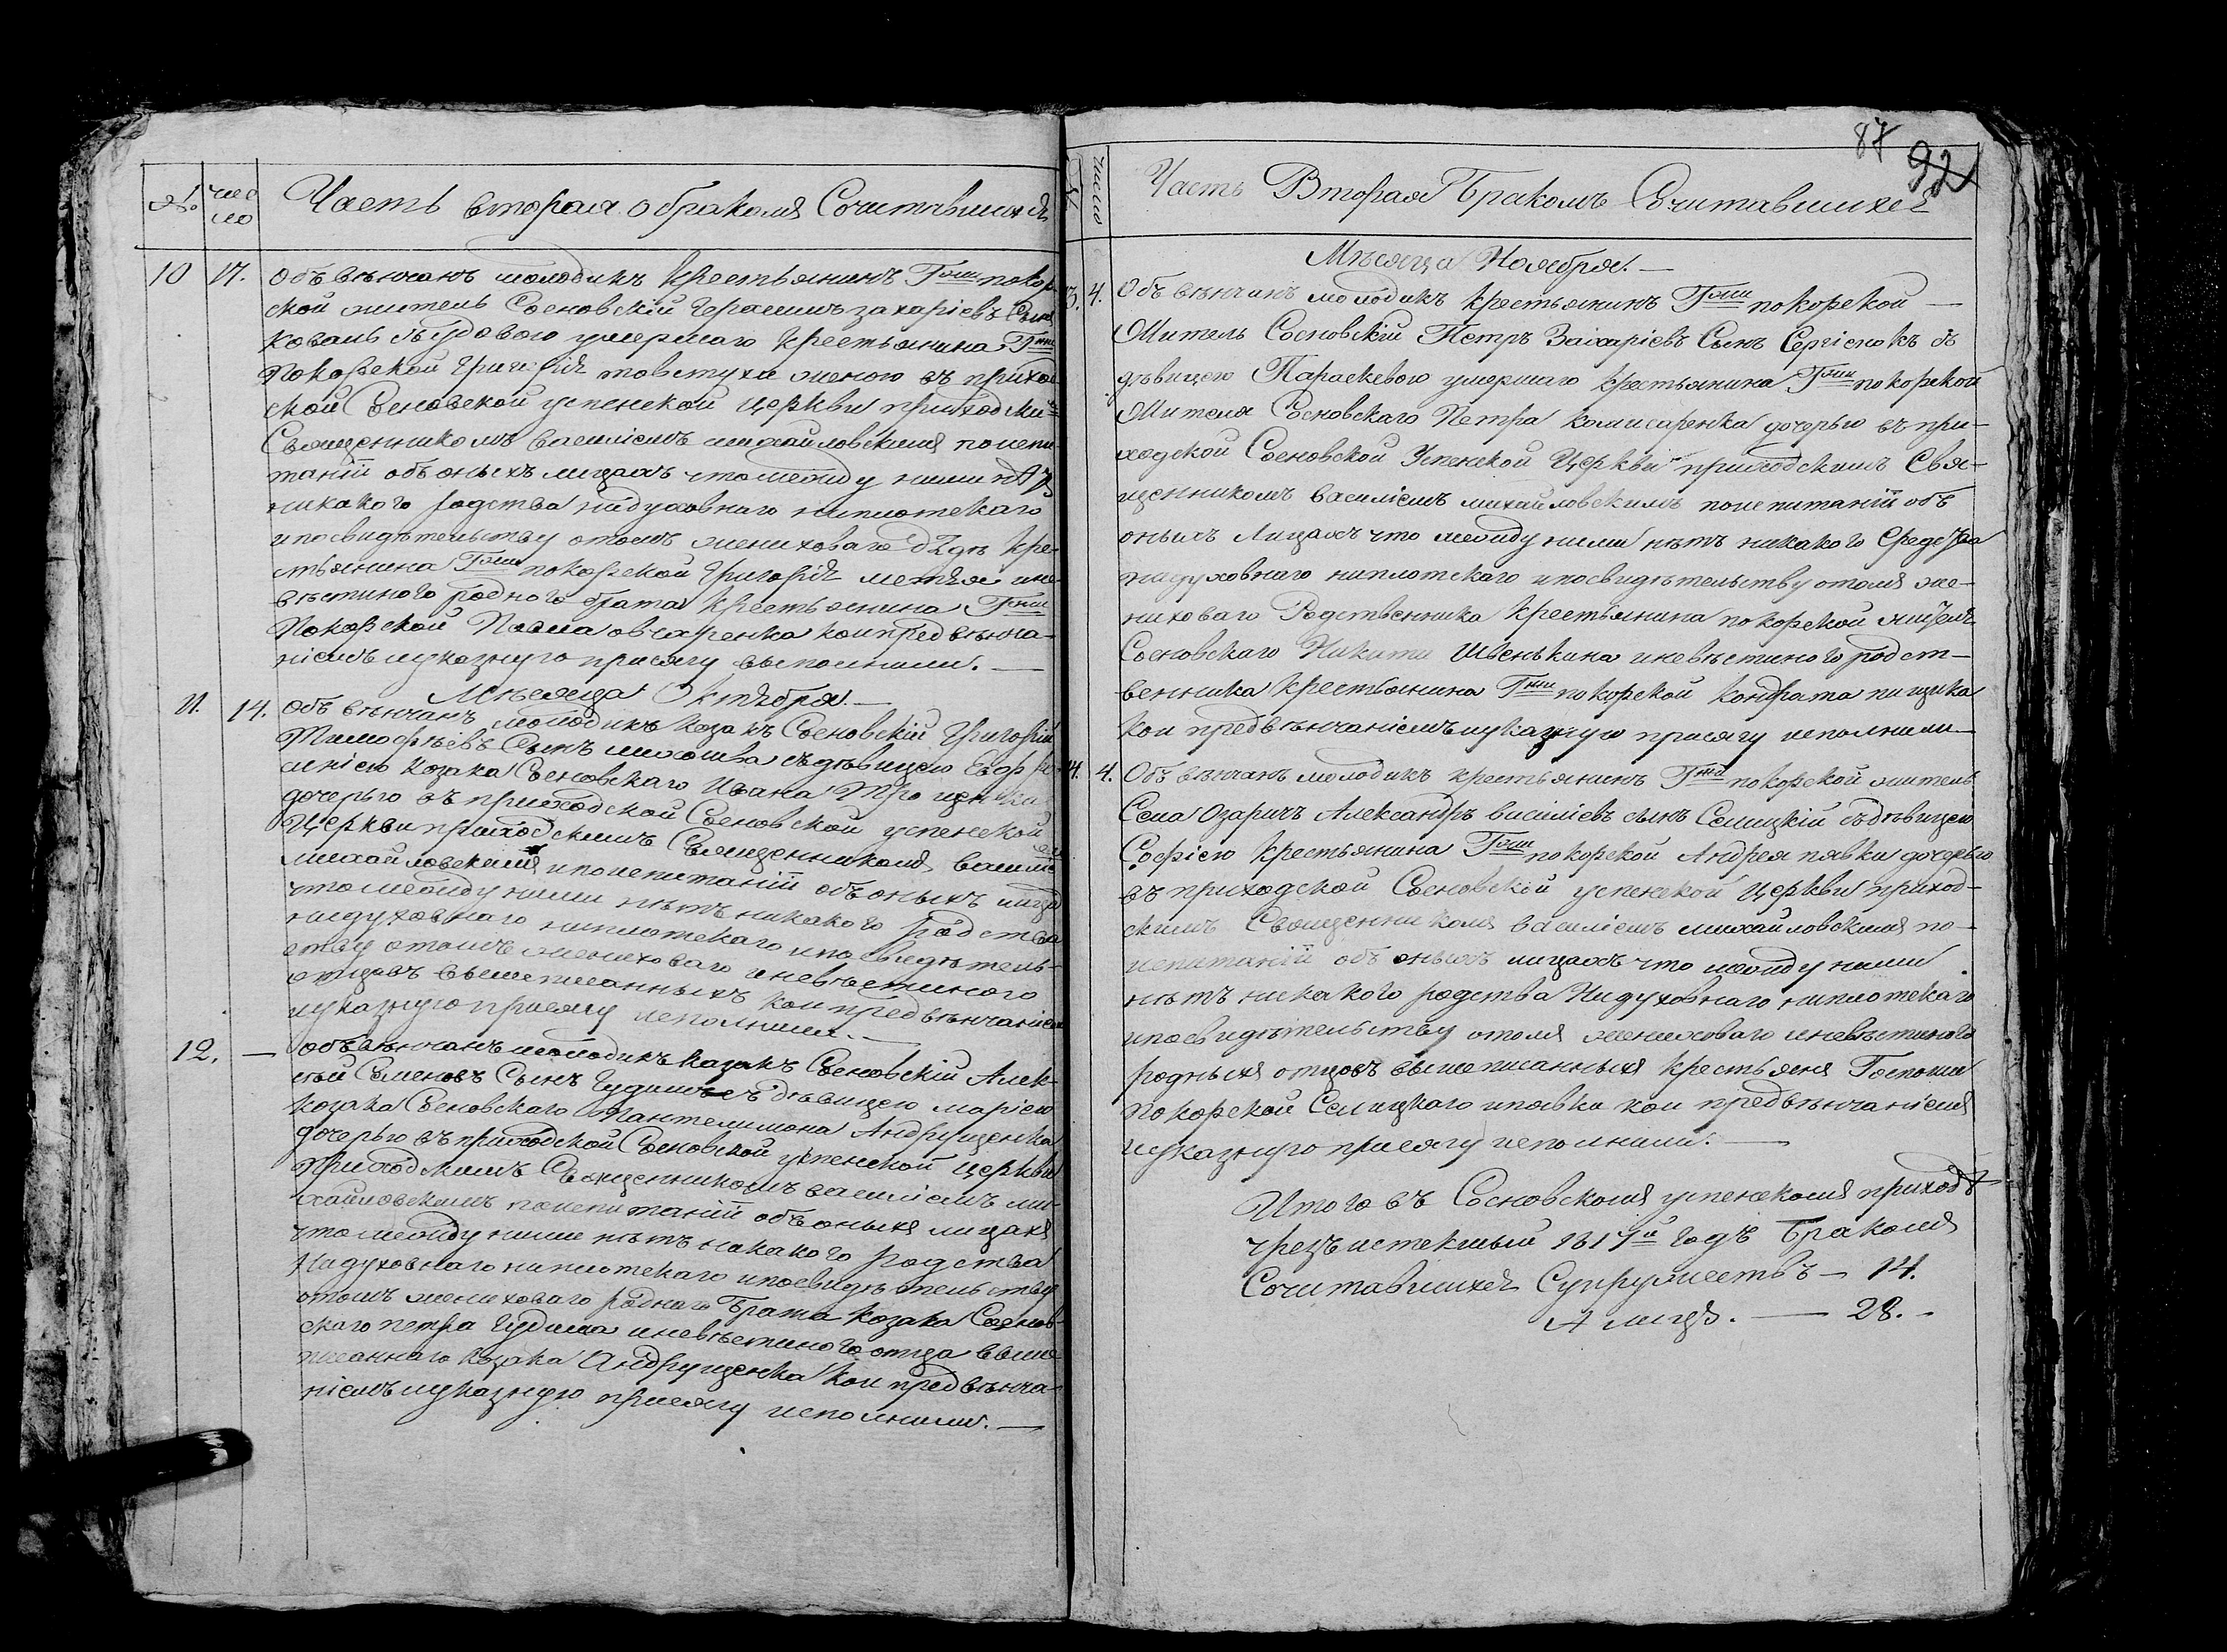 № число Часть вторая о бракомъ Сочитавшихся
10 17. Объвѣнчанъ молодикъ крестьянинъ Гжи покор
ской житель Сосновскїй Герасимъ захарїевъ Сынъ
коваль вдовою умершаго крестьянина Гжи
Покорской Григорїя товстухи женою въ приход
ской Сосновской успенской церкви приходским
Священникомъ василїемъ михайловскимъ поиспы
танїи объ оныхъ лицахъ что между ними нѣтъ
никакого родства нидуховнаго ниплотскаго
и посвидѣтельству отомъ жениховаго дяди кре
стьянина Гжи покорской Григорїя и не
вѣстиного родного брата крестьянина Гжи
Покорской Павла овчаренка кои предвѣнча-
нїемъ и указную присягу выполнили. —
Мѣсяца Октября. —
11. 14. Объ вѣнчанъ молодикъ козакъ Сосновскїй Григорїй
Тимофѣевъ Сынъ съ дѣвицею Евфро
синїею козака Сосновскаго Ивана Троценка
дочерью въ приходской Сосновской успенской
Церкви приходскимъ Священникомъ василїе
михайловскимъ и поиспытанїи объ оныхъ лица
что между ними нѣтъ никакого родства
нидуховнаго ниплотскаго и посвидѣтель-
ству отомъ жениховаго и невѣстиного
отцовъ вышеписанныхъ кои предвѣнчанїем
и указную присягу исполнили. —
12. — Объвѣнчанъ молодикъ казакъ Сосновскїй Алек-
сѣй Семеновъ Сынъ Гудимъ съ дѣвицею марїею
козака Сосновского Пантелимона Андрущенка
дочерью въ приходской Сосновской успенской церкви
Приходскимъ Священникомъ василїемъ ми-
хайловскимъ поиспытанїи объ оныхъ лицахъ
что между ними нѣтъ никакого родства
Нидуховнаго ниплотскаго и посвидѣтельству
отомъ жениховаго роднаго Брата козака Соснов-
скаго петра Гудима и невѣстиного отца выше
писаннаго козака Андрущенка кои предвѣнча-
нїемъ и указную присягу исполнили. —
87 92
число Часть Вторая Бракомъ Сочитавшихся
Мѣсяца Ноября. —
13. 4. Объ вѣнчанъ молодикъ крестьянинъ Гжи покорской —
Житель Сосновскїй Петръ Захарїевъ Сынъ Сергїенокъ съ
дѣвицею Параскевою умершаго крестьянина Гжи покорской
Жителя Сосновскаго Петра комисаренка дочерью въ при-
ходской Сосновской Успенской Церкви приходскимъ Свя-
щенникомъ василїемъ михайловскимъ поиспытанїи объ
оныхъ Лицахъ что между ними нѣтъ никакого Сродства
нидуховнаго ниплотскаго и посвидѣтельству отомъ же-
ниховаго Родственника крестьянина покорской жителя
Сосновскаго Никити Швенькина и невѣстиного родст-
венника крестьянина Гжи покорской кондрата пищика
кои предвѣнчанїемъ и указную присягу исполнили —
14. 4. Объ вѣнчанъ молодикъ крестьянинъ Гжи покорской житель
Села Озаричъ Александръ василїевъ сынъ Селицкїй съ дѣвицею
Софїею крестьянина Гжи покорской Андрея пявки дочерью
въ приходской Сосновской успенской Церкви приход-
скимъ Священникомъ василїемъ михайловскимъ по-
испытанїи объ оныхъ лицахъ что между ними
нѣтъ никакого родства Нидуховнаго ниплотскаго
и посвидѣтельству отомъ жениховаго и невѣстиного
родныхъ отцовъ вышеписанныхъ крестьянъ Госпожи
покорской Селицкаго и пявки кои предвѣнчанїемъ
и указную присягу исполнили. —
Итого въ Сосновскомъ успенскомъ приходѣ
чрезъ истекшый 1817й годъ Бракомъ
Сочитавшихся Супружествъ — 14.
А лицъ. — 28. —